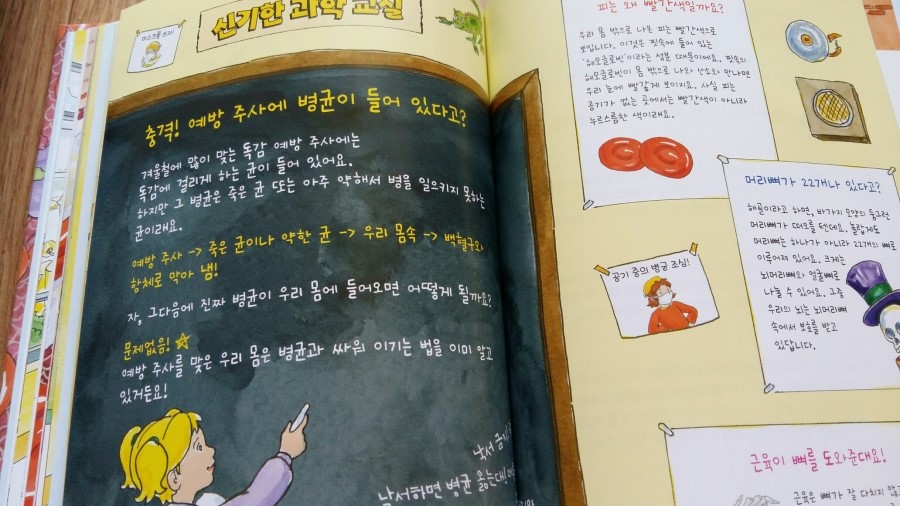 신기한 과학 교실
마스크를 쓰자!
충격! 예방 주사에 병균이 들어 있다고?
겨울철에 많이 맞는 독감 예방 주사에는
독감에 걸리게 하는 균이 들어 있어요.
하지만 그 병균은 죽은 균 또는 아주 약해서 병을 일으키지 못하는
균이래요.
예방 주사 -> 죽은 균이나 약한 균 -> 우리 몸속 -> 백혈구와
항체로 막아 냄!
자, 그다음에 진짜 병균이 우리 몸에 들어오면 어떻게 될까요?
문제없음!
예방 주사를 맞은 우리 몸은 병균과 싸워 이기는 법을 이미 알고
있거든요!
낙서 금지
낙서하면 병균 옮는대!
피는 왜 빨간색일까요?
우리 몸 밖으로 나온 피는 빨간색으로
보입니다. 이것은 핏속에 들어 있는
'헤모글로빈'이라는 성분 때문이에요. 핏속의
헤모글로빈이 몸 밖으로 나와 산소와 만나면
우리 눈에 빨갛게 보이지요. 사실 피는
공기가 없는 곳에서는 빨간색이 아니라
누르스름한 색이래요.
공기 중의 병균 조심!
머리뼈가 22개나 있다고?
해골이라고 하면, 바가지 모양의 둥그런
머리뼈가 떠오를 텐데요. 놀랍게도
머리뼈는 하나가 아니라 22개의 뼈로
이루어져 있어요. 크게는
뇌머리뼈와 얼굴뼈로
나눌 수 있어요. 그중
우리의 뇌는 뇌머리뼈
속에서 보호를 받고
있답니다.
근육이 뼈를 도와준대요!
근육은 뼈가 잘 다치지 않고